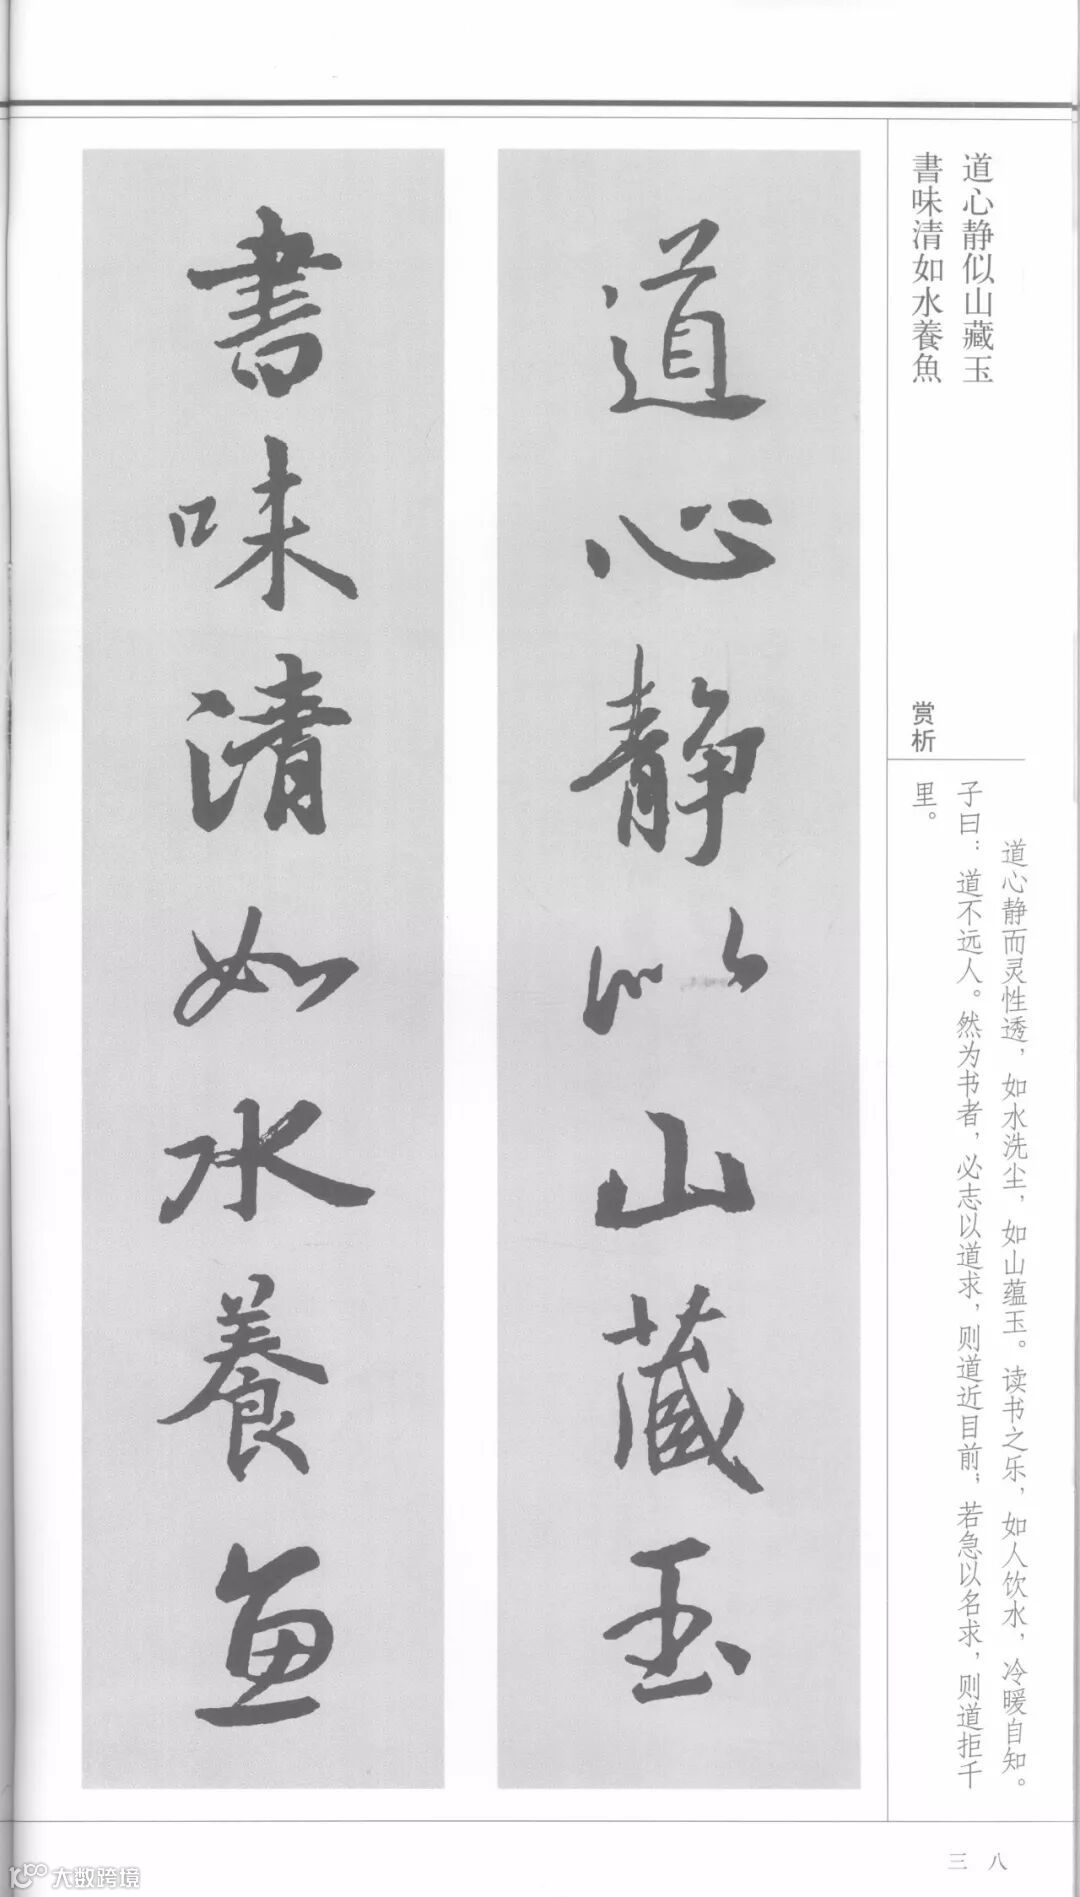 道心静似山藏玉
書味清如水養魚
赏析
道心静而灵性透，如水洗尘，如山蕴玉。读书之乐，如人饮水，冷暖自知。
子曰：道不远人。然为书者，必志以道求，则道近目前；若急以名求，则道拒千
里。
道心静似山藏玉
書味清如水養魚
三八
大数跨境